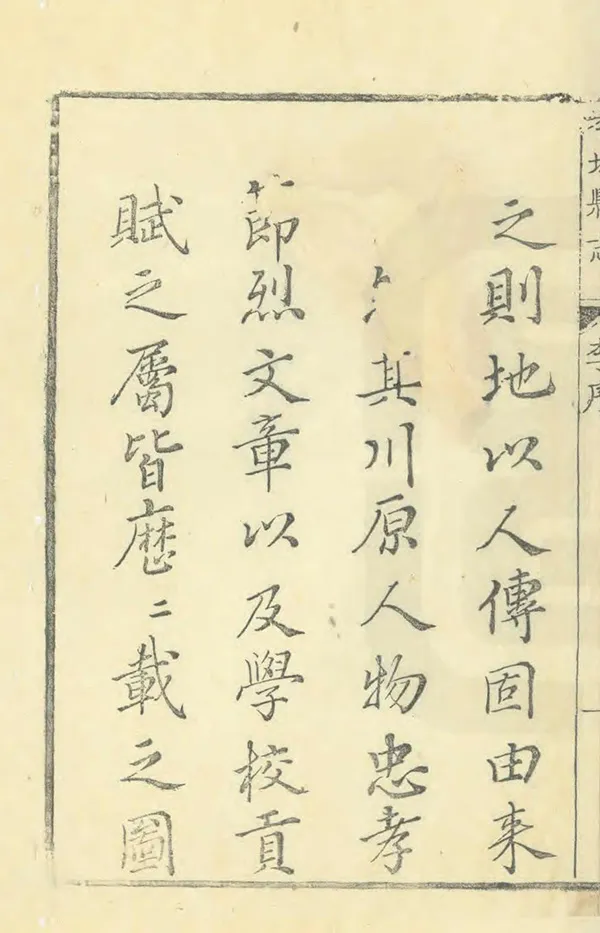 城縣志
李序
之則地以人傳固由來
其川原人物忠孝
節烈文章以及學校貢
賦之屬皆歷二載之圖